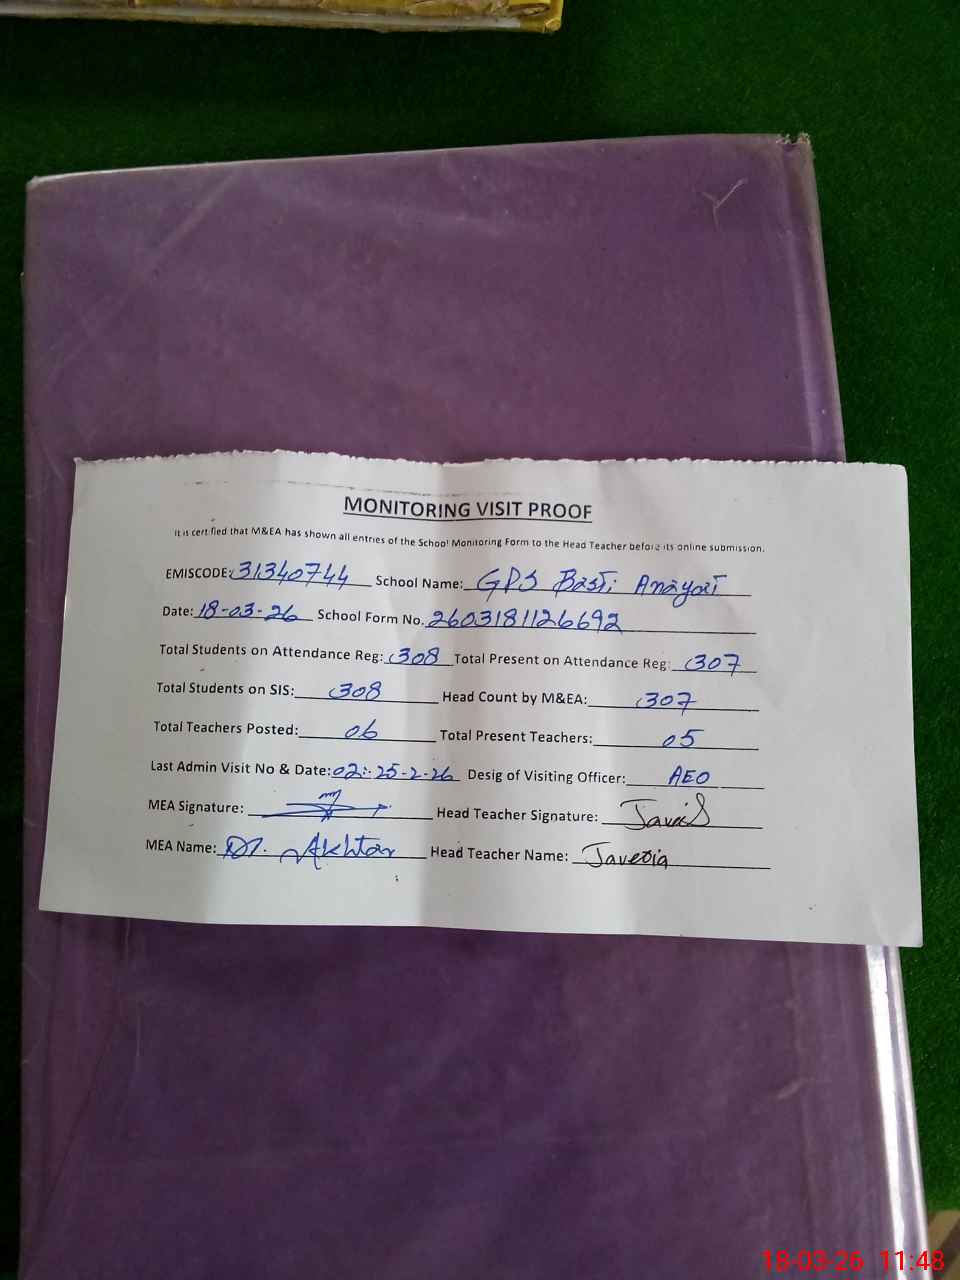 MONITORING VISIT PROOF
It is certified that M&EA has shown all entries of the School Monitoring Form to the Head Teacher before its online submission.
EMISCODE: 31340744 School Name: GPS Basti Anayat
Date: 18-03-26 School Form No. 2603181126692
Total Students on Attendance Reg: 308 Total Present on Attendance Reg: 307
Total Students on SIS: 308 Head Count by M&EA: 307
Total Teachers Posted: 06 Total Present Teachers: 05
Last Admin Visit No & Date: 02: 25-2-26 Desig of Visiting Officer: AEO
MEA Signature: Head Teacher Signature:
MEA Name: Akhtar Head Teacher Name: Javeria
18-03-26 11:48